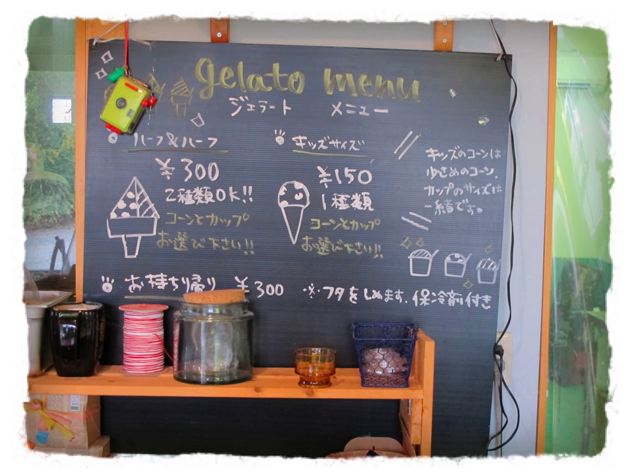 gelato menu
ジェラート メニュー
ハーフ&ハーフ
¥300
2種類OK!!
コーンとカップ
お選び下さい!!
キッズサイズ
¥150
1種類
コーンとカップ
お選び下さい!!
キッズのコーンは
少さめのコーン.
カップのサイズは
一緒です。
お持ち帰り ¥300 ※フタをしめます.保冷剤付き